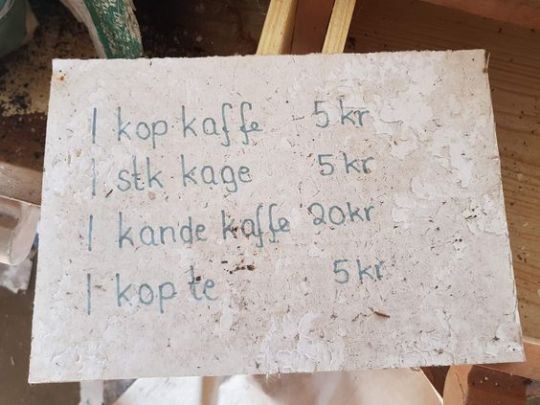 1 kop kaffe 5 kr
1 stk kage 5 kr
1 kande kaffe 20kr
1 kop te 5 kr